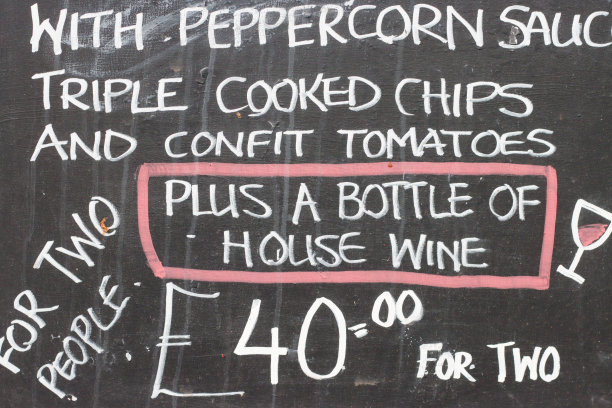 WITH PEPPERCORN SAUC
TRIPLE COOKED CHIPS
AND CONFIT TOMATOES
PLUS A BOTTLE OF
HOUSE WINE
FOR TWO
PEOPLE.
£40=00
FOR TWO